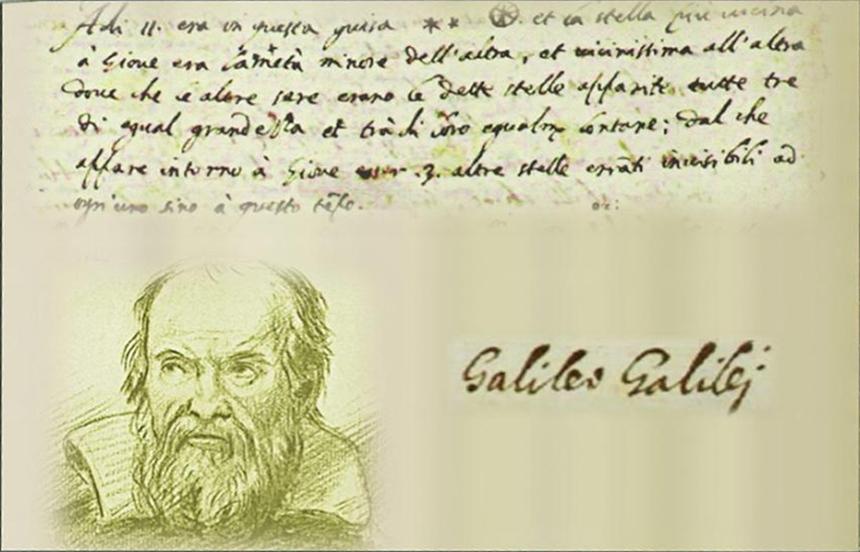 Adi 11. era in questa guisa ** et la stella più vicina
à Giove era la metà minore dell'altra, et vicinissima all'altra
dove che le altre sere erano le dette stelle apparite tutte tre
di egual grandezza et trà di loro egualm̃ lontane; dal che
appare intorno à Giove .3. altre stelle errãti invisibili ad
ogn'uno sino à questo tẽpo.
Galileo Galilej